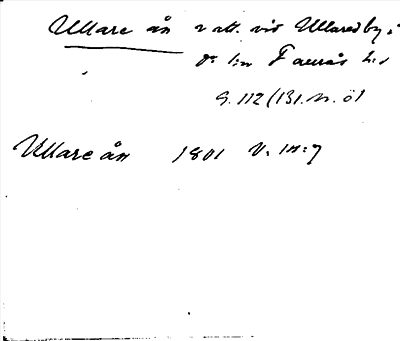 Ullare ån vatt. vid Ullared by,
Faurås h:d
S. 112 (131. n. ö)
Ullare ån 1801 V. 1H:7